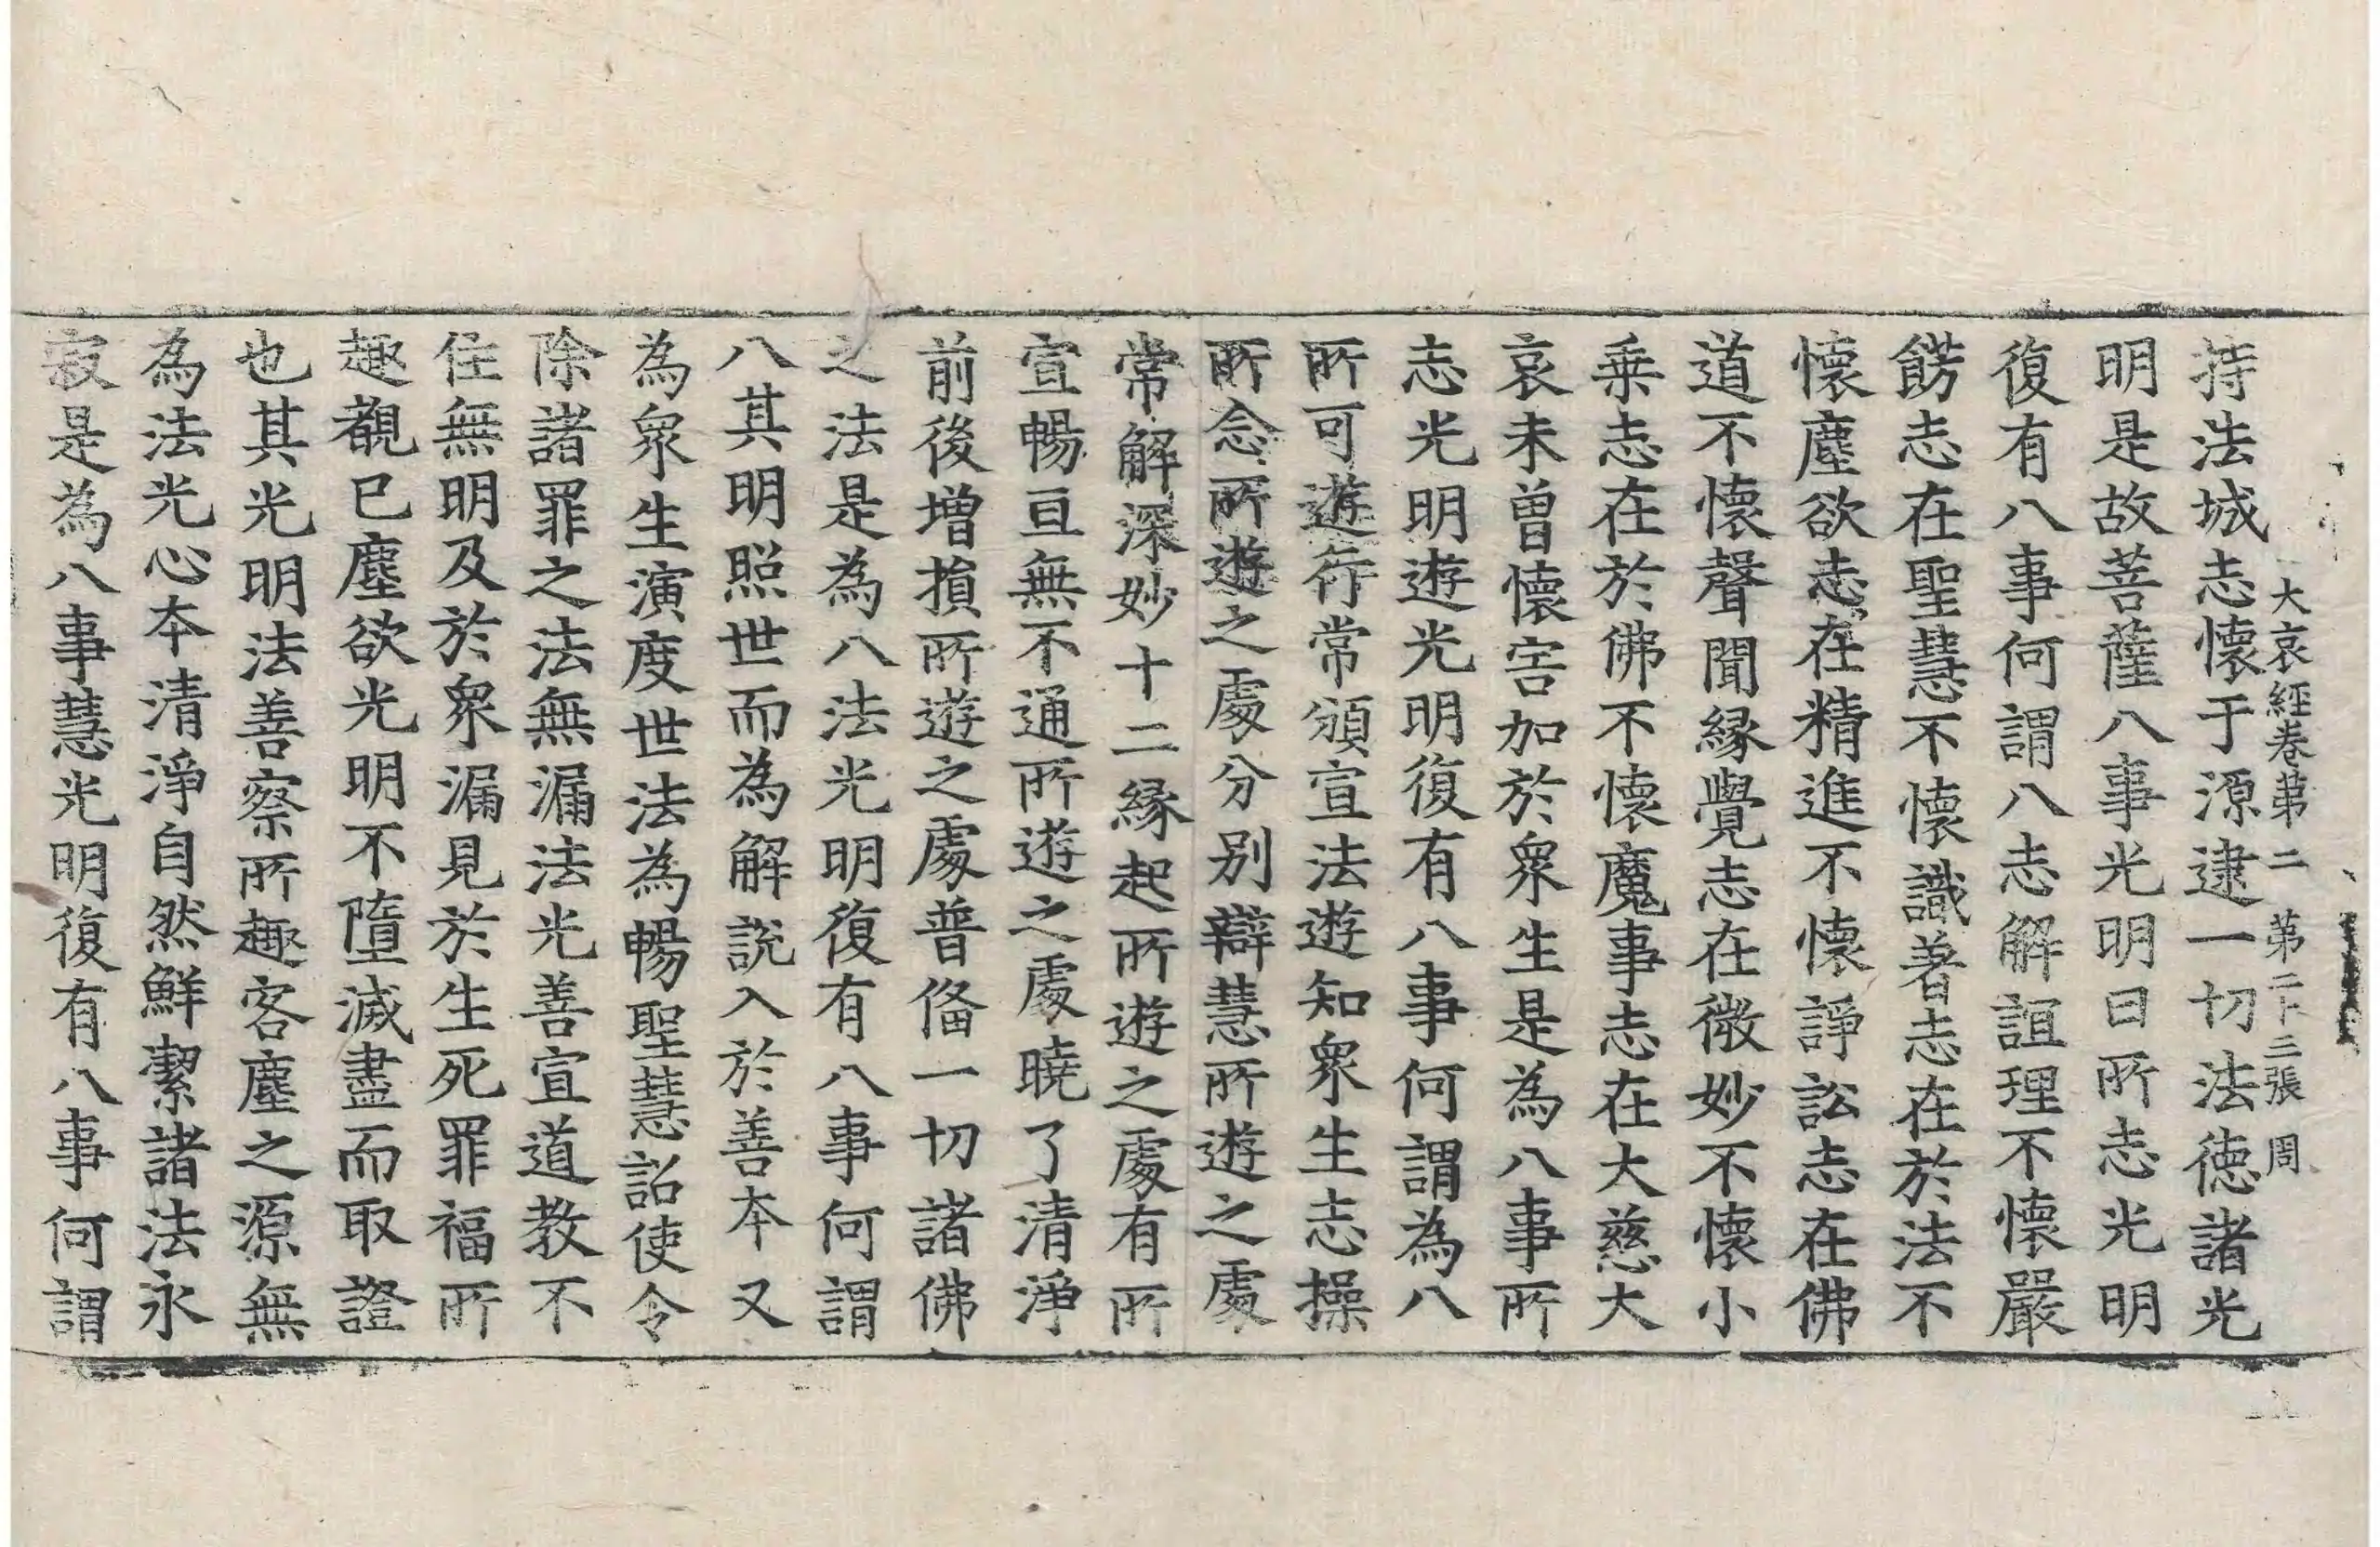 大哀經卷第二　第二十二張　周
持法城志懷于源逮一切法德諸光
明是故菩薩八事光明曰所志光明
復有八事何謂八志解誼理不懷嚴
餝志在聖慧不懷識著志在於法不
懷塵欲志在精進不懷諍訟志在佛
道不懷聲聞緣覺志在微妙不懷小
乗志在於佛不懷魔事志在大慈大
哀未曾懷害加於衆生是為八事所
志光明遊光明復有八事何謂為八
所可遊行常頒宣法遊知衆生志操
所念所遊之處分别辯慧所遊之處
常解深妙十二緣起所遊之處有所
宣暢亘無不通所遊之處曉了清淨
前後增損所遊之處普俻一切諸佛
之法是為八法光明復有八事何謂
八其明照世而為解說入於善本又
為衆生演度世法為暢聖慧詔使令
除諸罪之法無漏法光善宣道教不
住無明及於衆漏見於生死罪福所
趣覩已塵欲光明不墮滅盡而取證
也其光明法善察所趣客塵之源無
為法光心本清淨自然鮮潔諸法永
寂是為八事慧光明復有八事何謂